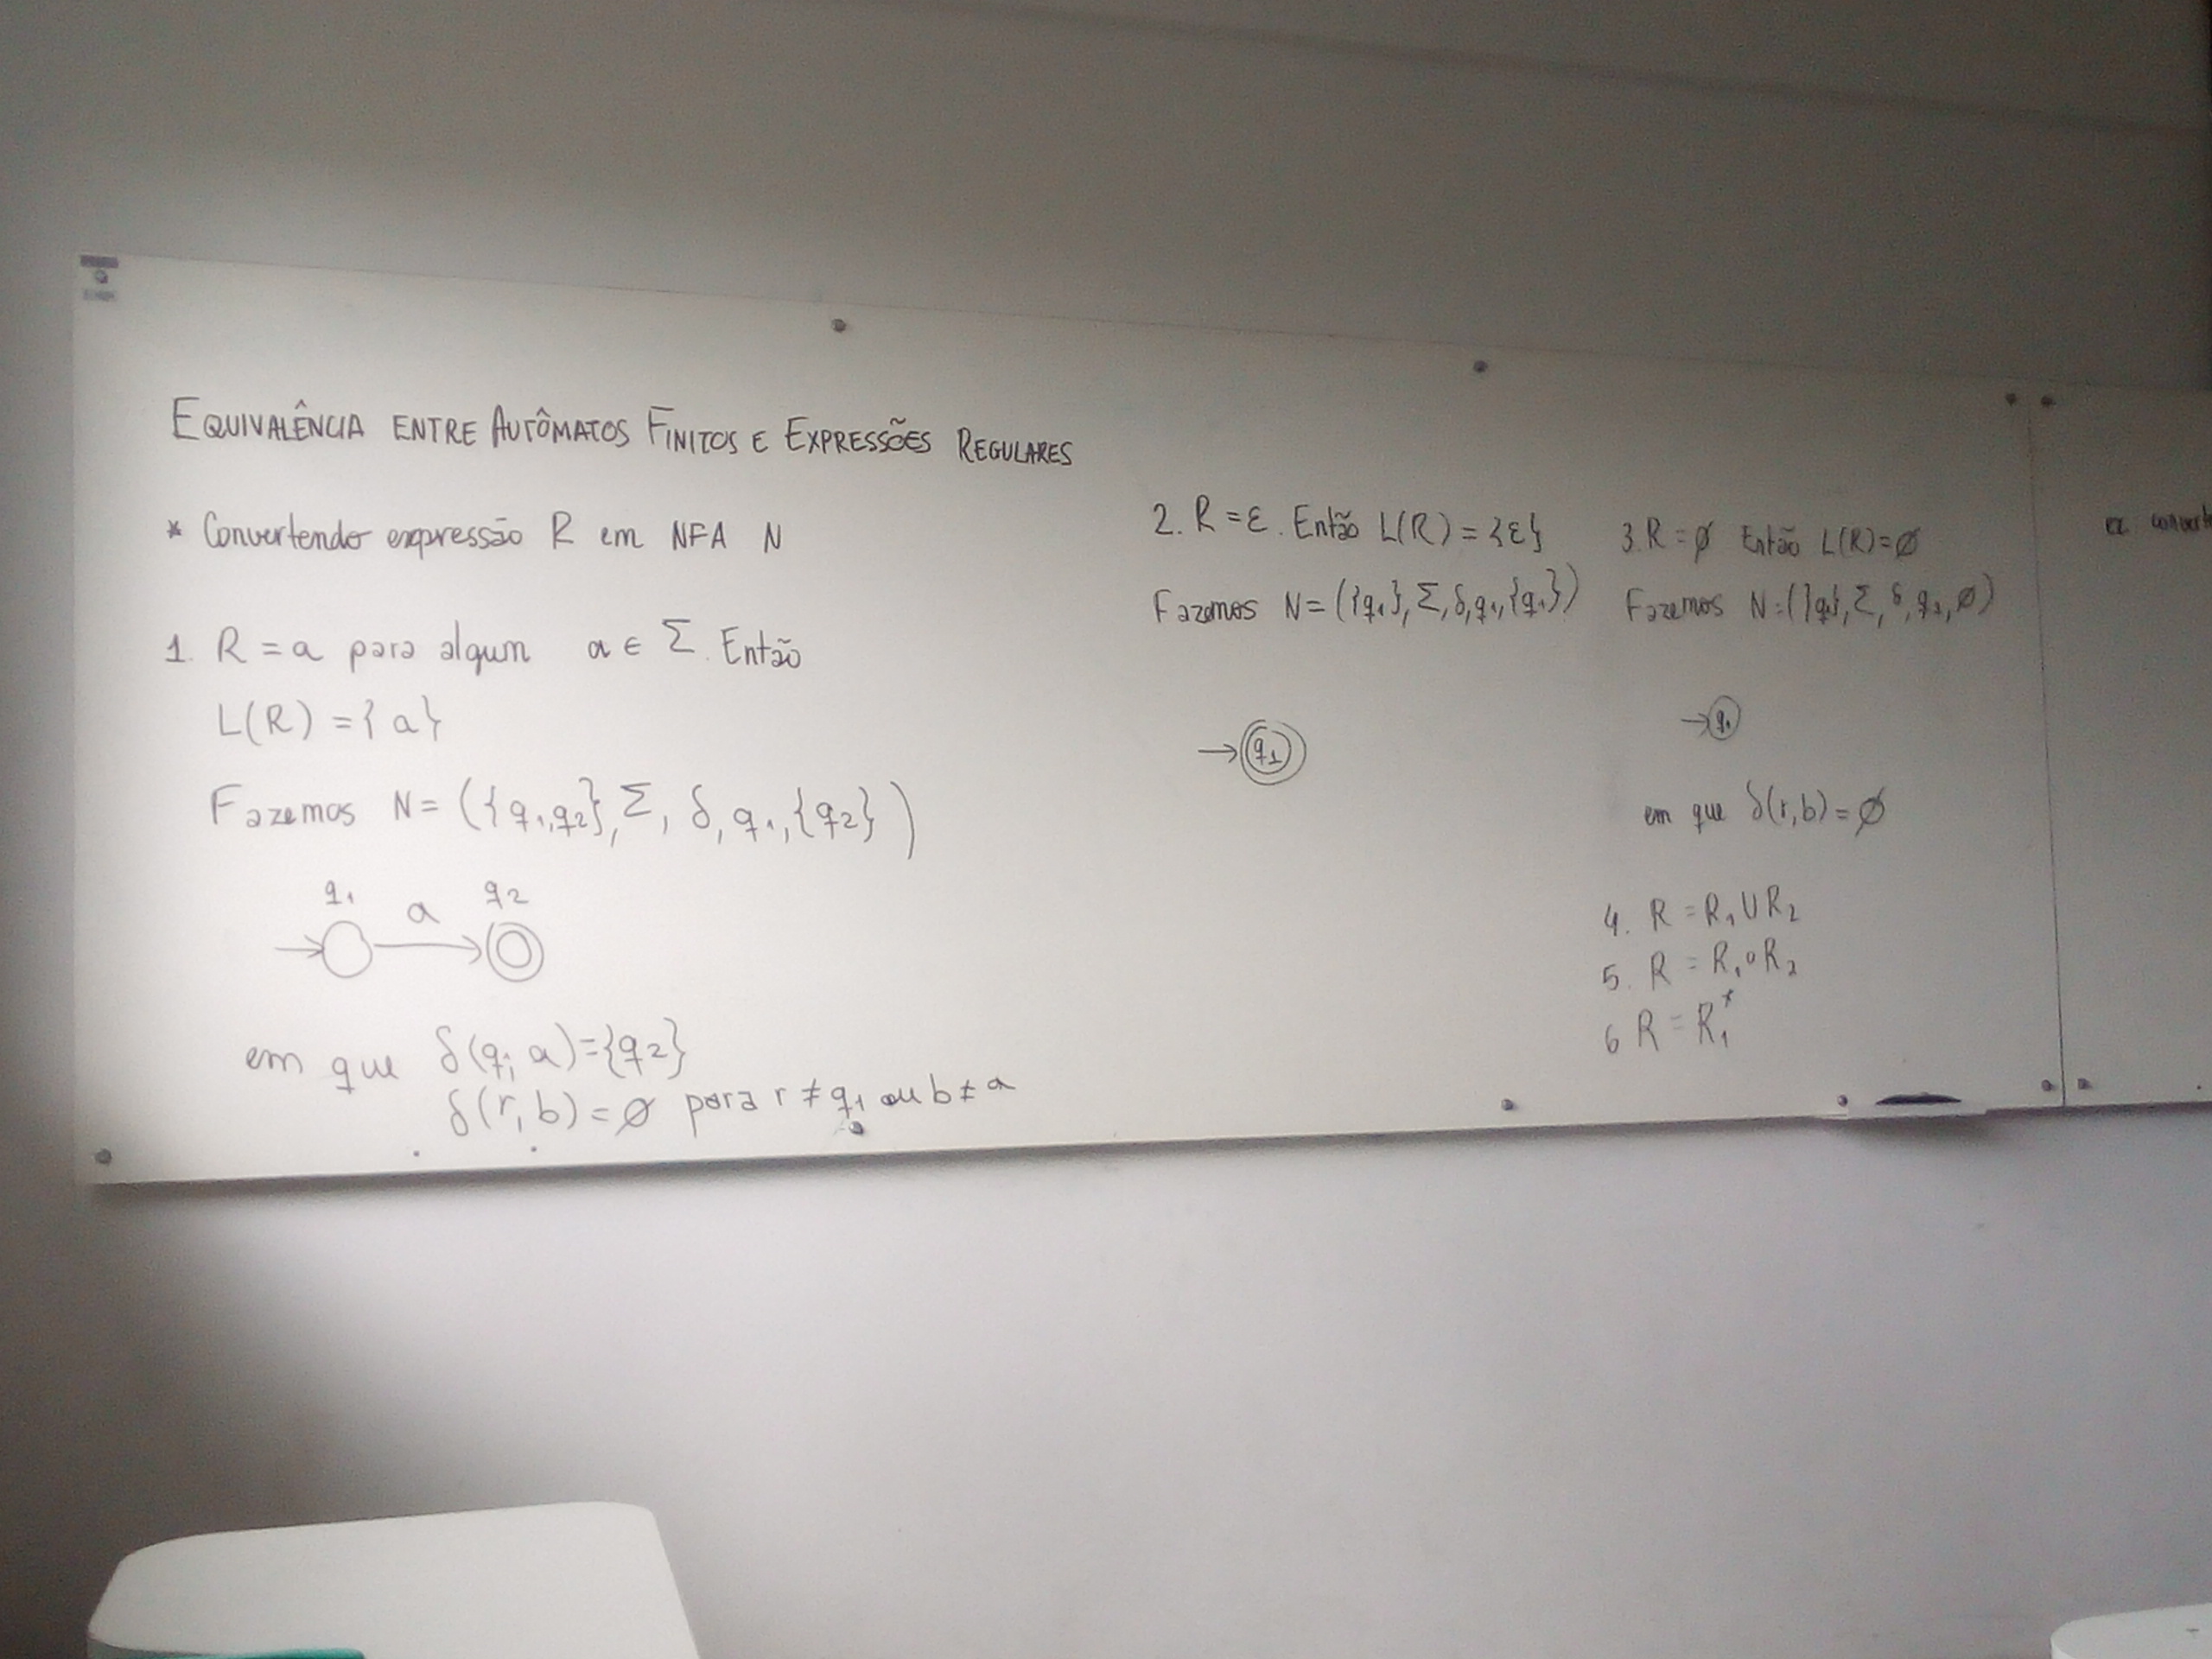 EQUIVALÊNCIA ENTRE AUTÔMATOS FINITOS E EXPRESSÕES REGULARES
* Convertendo expressão R em NFA N
1. R = a para algum a ∈ Σ. Então
L(R) = {a}
Fazemos N = ({q₁,q₂}, Σ, δ, q₁, {q₂})
q₁ a q₂
em que δ(q₁, a) = {q₂}
δ(r, b) = ∅ para r ≠ q₁ ou b ≠ a
2. R = ε. Então L(R) = {ε}
Fazemos N = ({q₁}, Σ, δ, q₁, {q₁})
q₁
3. R = ∅ Então L(R) = ∅
Fazemos N = ({q₁}, Σ, δ, q₁, ∅)
q₁
em que δ(r, b) = ∅
4. R = R₁ ∪ R₂
5. R = R₁ ∘ R₂
6 R = R₁*